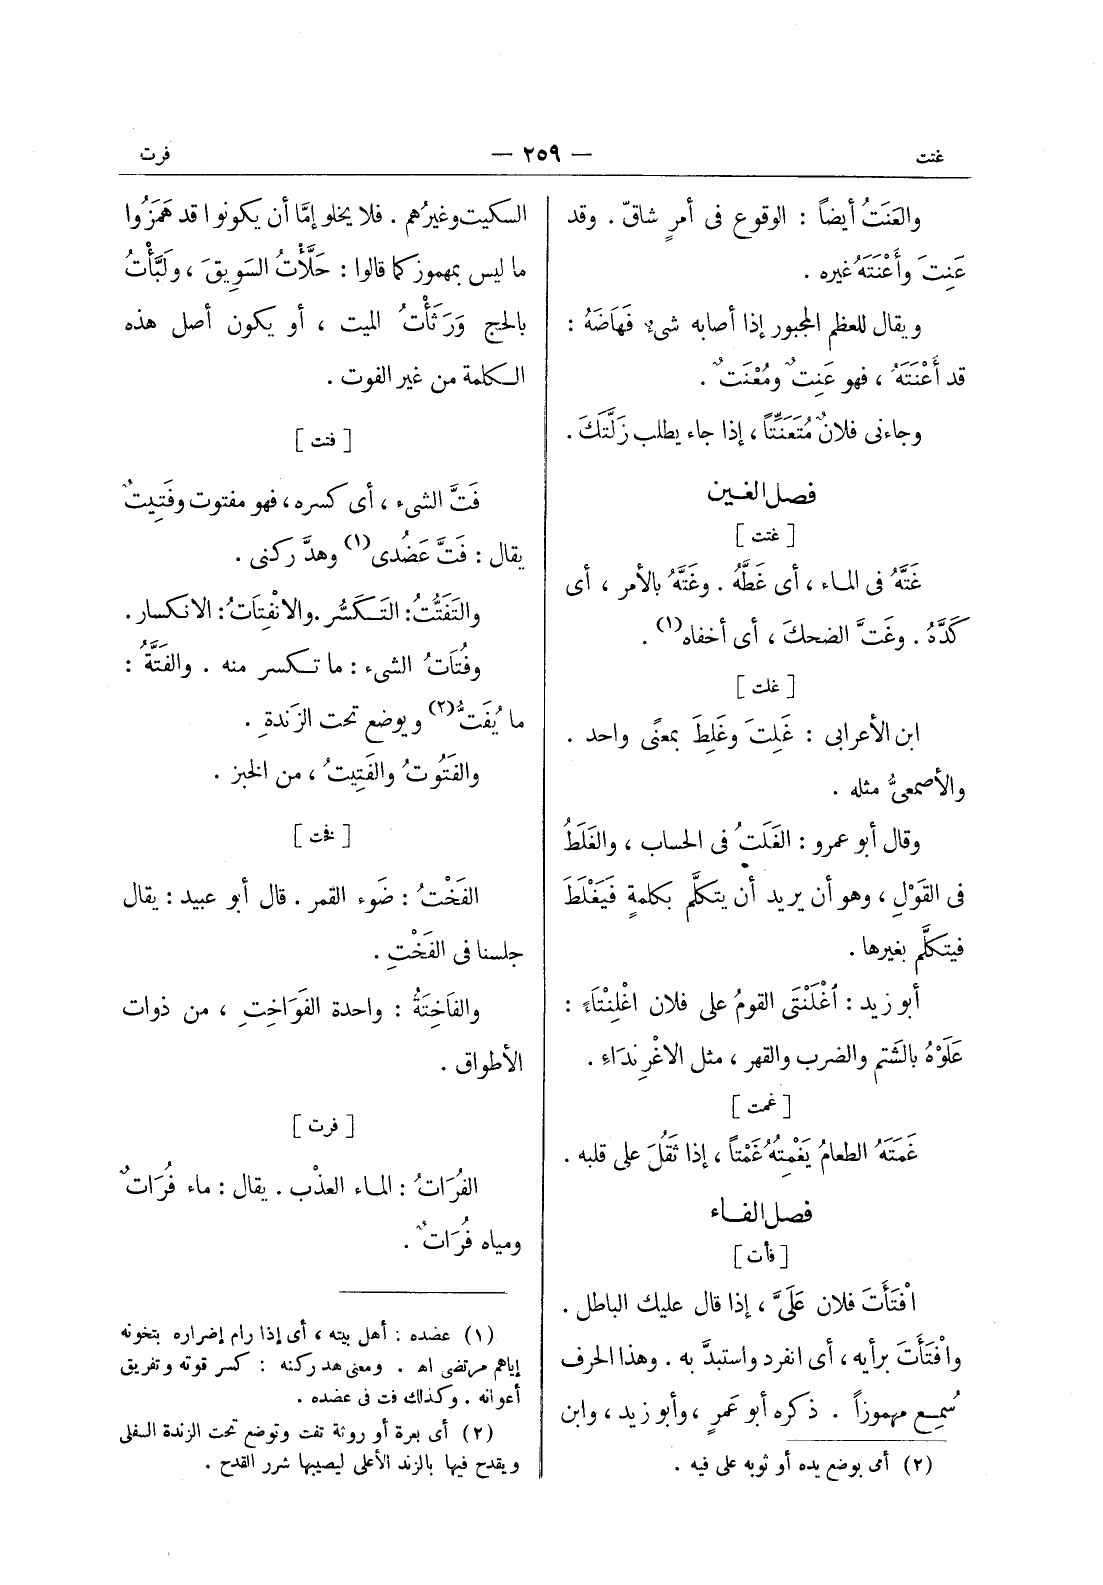 غتت — ٢٥٩ — فرت
والعَنَتُ أيضاً : الوقوع فى أمرٍ شاقّ . وقد
عَنِتَ وأَعْنَتَهُ غيره .
ويقال للعظم المجبور إذا أصابه شىء فَهَاضَهُ :
قد أَعْنَتَهُ ، فهو عَنِتٌ ومُعْنَتٌ .
وجاءنى فلانٌ مُتَعَنِّتاً ، إذا جاء يطلب زَلَّتَكَ .
فصل الغين
[ غتت ]
غَتَّهُ فى الماء ، أى غَطَّهُ . وغَتَّهُ بالأمر ، أى
كَدَّهُ . وغَتَّ الضحكَ ، أى أخفاه (١) .
[ غلت ]
ابن الأعرابى : غَلِتَ وغَلِطَ بمعنًى واحد .
والأصمعىُّ مثله .
وقال أبو عمرو : الغَلَتُ فى الحساب ، والغَلَطُ
فى القَوْلِ ، وهو أن يريد أن يتكلَّم بكلمةٍ فَيَغْلَطَ
فيتكلَّم بغيرها .
أبو زيد : اُغْلَنْتَى القومُ على فلان اغْلِنْتَاءً :
عَلَوْهُ بالشَتم والضرب والقهر ، مثل الاغْرِندَاءِ .
[ غمت ]
غَمَتَهُ الطعامُ يَغْمِتُهُ غَمْتاً ، إذا ثَقُلَ على قلبه .
فصل الفاء
[ فأت ]
افْتَأَتَ فلان عَلَىَّ ، إذا قال عليك الباطل .
وافْتَأَتَ برأيه ، أى انفرد واستبدَّ به . وهذا الحرف
سُمِع مهموزاً . ذكره أبو عَمرٍ ، وأبو زيد ، وابن
(٢) أمى بوضع يده أو ثوبه على فيه .
السكيت وغيرُهم . فلا يخلو إمَّا أن يكونوا قد هَمَزُوا
ما ليس بمهموز كما قالوا : حَلَّأْتُ السَوِيقَ ، ولَبَّأْتُ
بالحج وَرَثَأْتُ الميت ، أو يكون أصل هذه
الكلمة من غير الفوت .
[ فتت ]
فَتَّ الشىء ، أى كسره ، فهو مفتوت وفَتِيتٌ
يقال : فَتَّ عَضُدى (١) وهدَّ ركنى .
والتَفَتُّتُ : التَكَسُّر . والانْفِتَاتُ : الانكسار .
وفُتَاتُ الشىء : ما تكسر منه . والفَتَّةُ :
ما يُفَتُّ (٢) ويوضع تحت الزَندةِ .
والفَتُوتُ والفَتِيتُ ، من الخبز .
[ فخت ]
الفَخْتُ : ضَوء القمر . قال أبو عبيد : يقال
جلسنا فى الفَخْتِ .
والفَاخِتَةُ : واحدة الفَوَاخِتِ ، من ذوات
الأطواق .
[ فرت ]
الفُرَاتُ : الماء العذْب . يقال : ماء فُرَاتٌ
ومياه فُرَاتٌ .
(١) عضده : أهل بيته ، أى إذا رام إضراره بتخونه
إياهم مرتضى اهـ . ومعنى هد ركنه : كسر قوته وتفريق
أعوانه . وكذلك فت فى عضده .
(٢) أى بعرة أو روثة تفت وتوضع تحت الزندة السفلى
ويقدح فيها بالزند الأعلى ليصيبها شرر القدح .